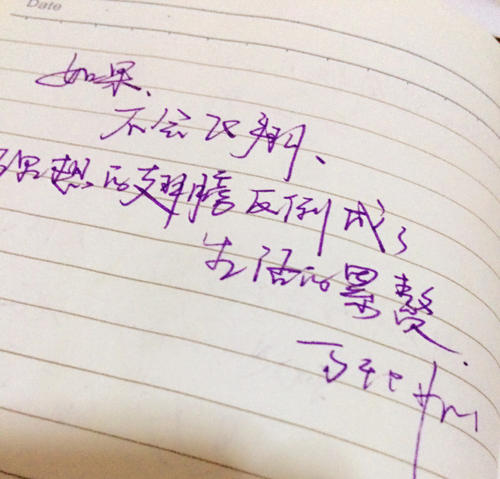 Date
如果、
不会飞翔、
理想的翅膀反倒成了
生活的累赘.